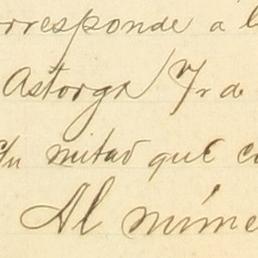 orresponde a l
Astorga Yr de
Su mitad que c
Al núme